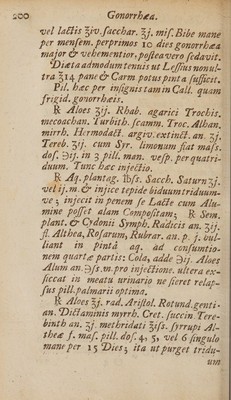 200 Gonorrhœa.
vel lactis ℥iv. sacchar. ℥j. mis. Bibe mane
per mensem. perprimos 10 dies gonorrhœa
major & vehementior, postea vero sedavit.
Diæta admodum tenuis ut Lessius non ul-
tra ℥14 pane & Carm potus pinta sufficit.
Pil. hæc per insignis tam in Call. quam
frigid. gonorrhœis.
℞ Aloes ℥ij. Rhab. agarici Trochis.
mecoachan. Turbith. scamm. Troc. Alhan.
mirrh. Hermodact. argiv. extinct. an. ʒj.
Tereb. ℥ij. cum Syr. limonum fiat mass.
dos. ℈ij. in 3 pill. man. vesp. per quatri-
duum. Tunc hæc injectio.
℞ Aq. plantag. ℔s. Sacch. Saturn ʒj.
vel ij. m. & injice tepide biduum triduum-
ve; injecit in penem se Lacte cum Alu-
mine posset alam Compositam; ℞ Sem.
plant. & Crdonii Symph. Radicis an. ʒij.
fl. Althea, Rosarum, Rubrar. an. p. j. bul-
liant in pintâ aq. ad consumtio-
nem quartæ partis: Cola, adde ℈ij. Aloes
Alum an. ℈ss. m. pro injectione. ultera ex-
siccat in meatu urinario ne fieret relap-
sus pill. palmarii optima.
℞ Aloes ℥j. rad. Aristol. Rotund. genti-
an. Dictaminis myrrh. Cret. succin Tere-
binth an ʒj. methridati ʒiss. syrrupi Al-
theæ s. mas. pill. dos. 4, 5, vel 6 singulo
mane per 15 Dies; ita ut purget tridu-
um